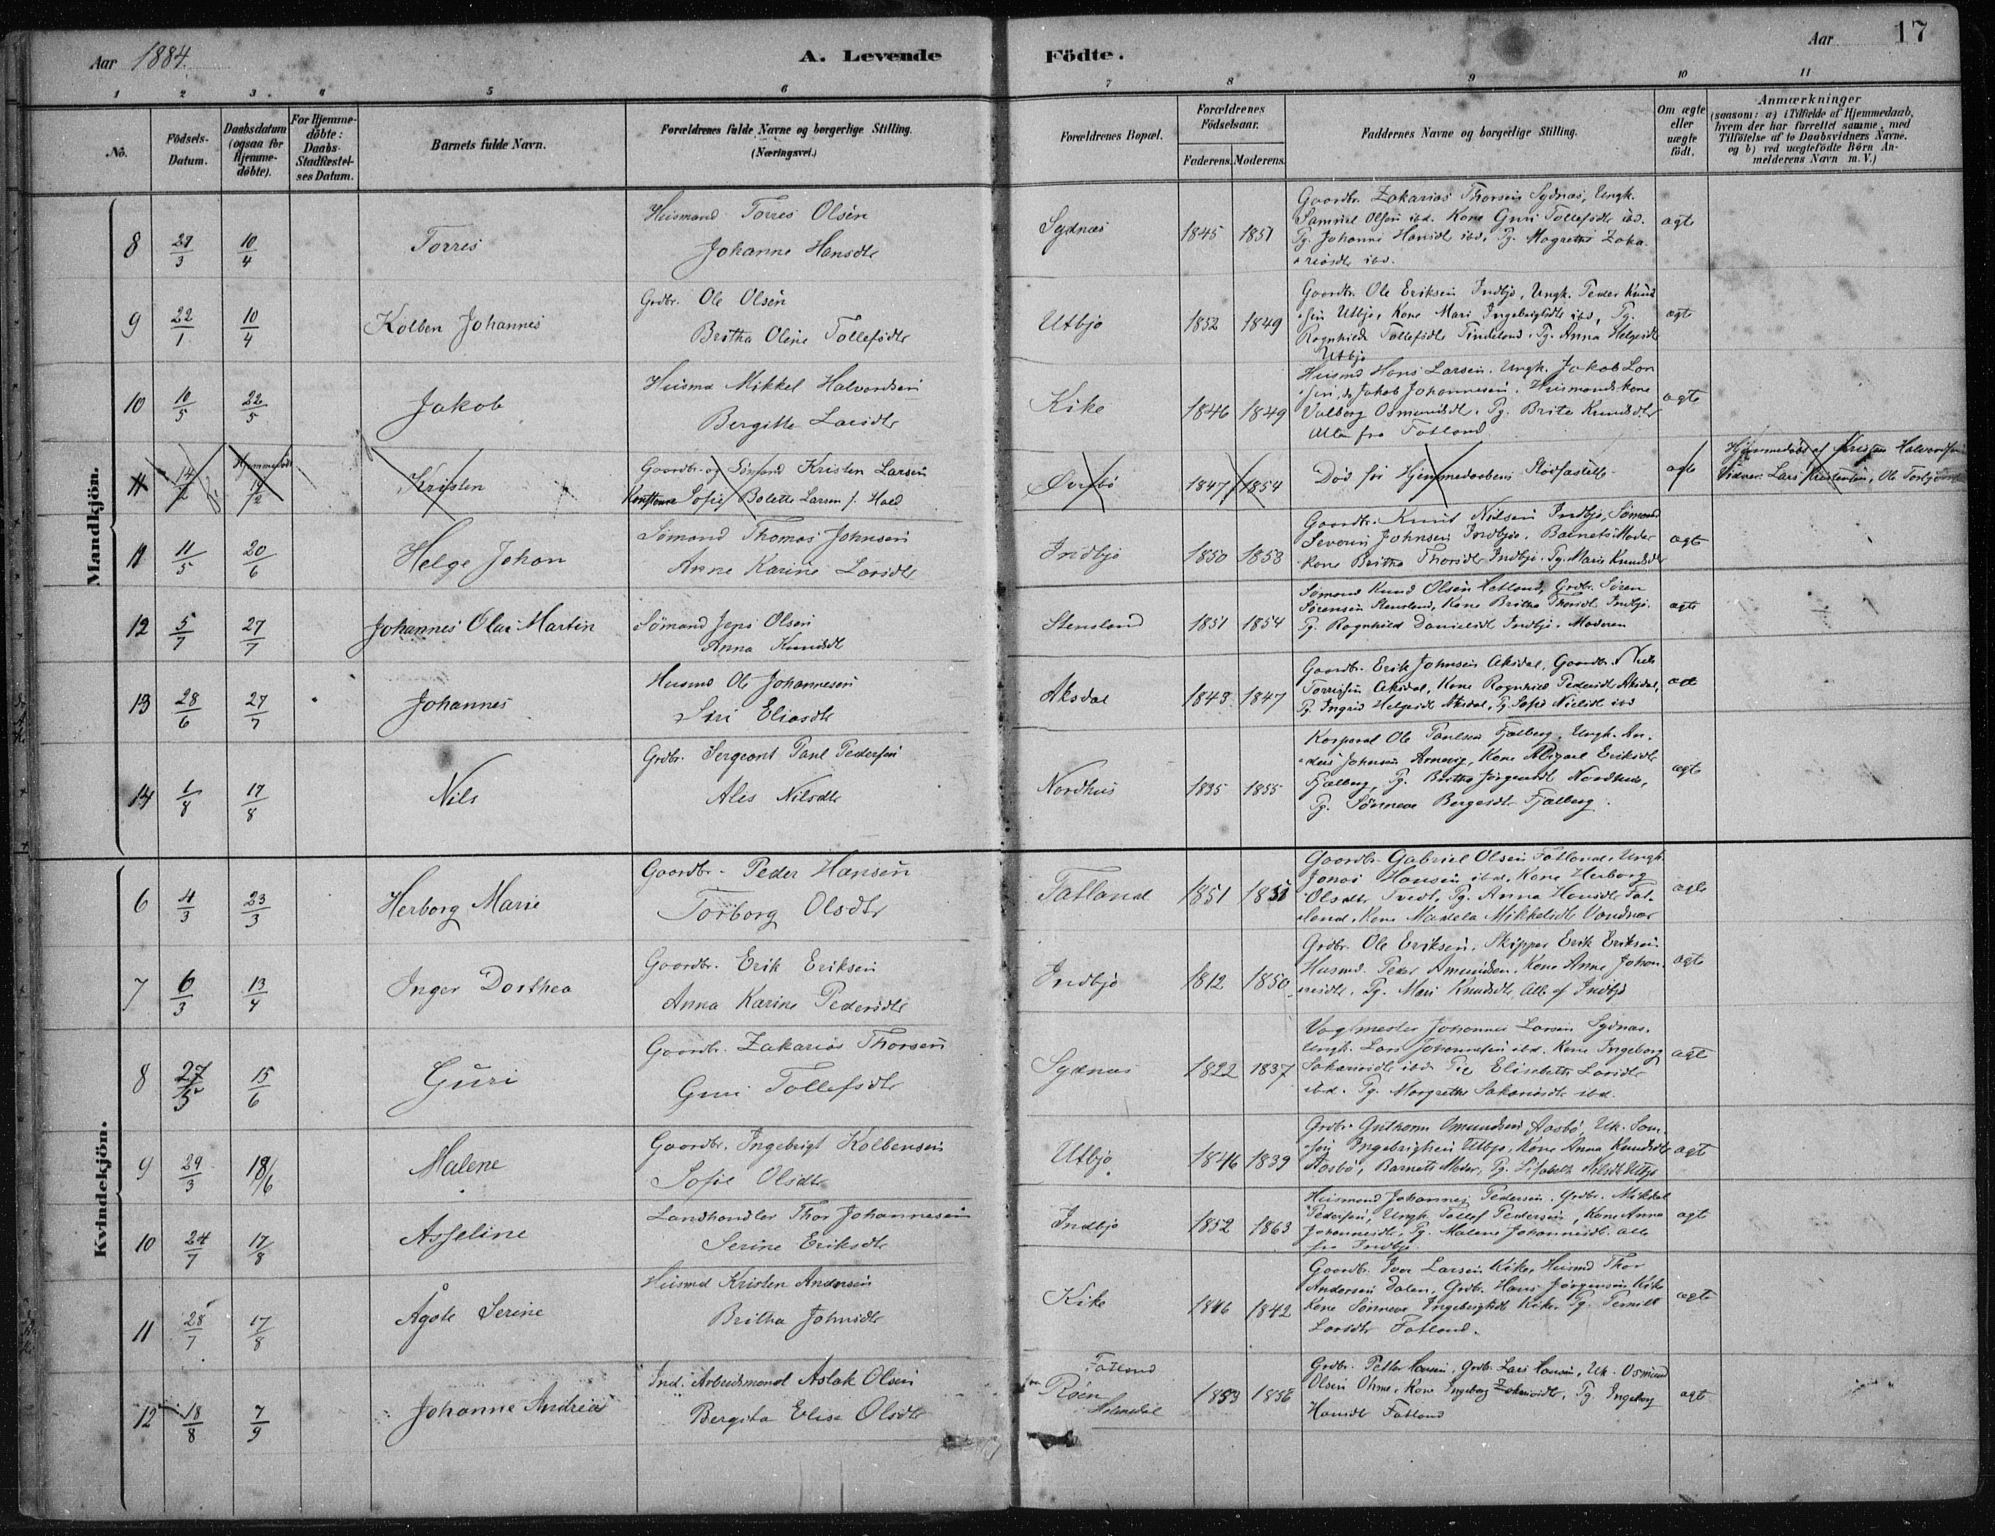 Aar 1884.
A. Levende Födte.
Aar 17
1 2 3. 4 5 6 7 8 9 10 11
No.
Födsels-Datum.
Daabsdatum (ogsaa for Hjemme-döbte).
For Hjemme-döbte: Daabs-Stadfæstel-ses Datum.
Barnets fulde Navn.
Forældrenes fulde Navne og borgerlige Stilling. (Næringsvei.)
Forældrenes Bopæl.
Forældrenes Födselsaar.
Faderens. Moderens.
Faddernes Navne og borgerlige Stilling.
Om ægte eller uægte födt.
Anmærkninger (saasom: a) i Tilfælde af Hjemmedaab, hvem der har forrettet samme, med Tilföielse af to Daabsvidners Navne, og b) ved uægtefödte Börn An-melderens Navn m. V.)
Mandkjön.
8 10/4 Torres
Husmand Torres Olsen
Johanne Hansdtr
Sydnæs 1845 1851
Gaardbr. Zakarias Thorsen Sydnæs, Ungk.
Samuel Olsen ibd. Kone Guri Tollefsdtr ibd.
Pg. Johanne Hansdtr ibd, Pg. Magrethe Zaka
riasdtr ibd.
ægte
9 22/1 10/4 Kolben Johannes
Grdbr. Ole Olsen
Britha Oline Tollefsdtr
Utbjo 1852 1849
Gaardbr. Ole Eriksen Indbjo, Ungk. Peder Knud
sen Utbjo, Kone Mari Ingebrigtsdtr ibd, Pg.
Ragnhilde Tollefsdtr Tindeland. Pg. Anna Helgesdtr
Utbjo
ægte
10 10/5 22/5 Jakob
Husmd Mikkel Halvardsen
Bergitte Larsdtr
Kike 1846 1849
Husmd Hans Larsen. Ungk. Jakob Lar
sen, do Jakob Johannesen. Husmandskone
Valborg Osmundsdtr. Pg. Brite Knudsdtr
Alle fra Fatland
ægte
11 14/2 Hjemmedøbt 14/2 Kristen
Gaardbr. og Sømand Kristen Larsen
Sofie Bolette Larsen f. Hald
Øvrebø 1847 1854
Død før Hjemmedaabens Stadfæstelse
ægte
Hjemmedøbt af Kristen Halvorsen
Vidner: Lars Kristensen, Ole
11 11/5 20/6 Helge Johan
Sømand Thomas Johnsen
Anne Karine Larsdtr
Indbjo 1850 1853
Gaardbr. Knud Nilsen Indbjo, Sømand
Severin Johnsen Indbjo. Barnets Moder
Kone Britha Thorsdtr Indbjo. Pg. Marie Knudsdtr
ægte
12 5/7 27/7 Johannes Olai Martin
Sømand Jens Olsen
Anna Knudsdtr
Stensland 1851 1854
Sømand Knud Olsen Hetland, Grdbr. Sören
Sörensen Stensland, Kone Britha Thorsdtr Indbjo.
Pg. Ragnhild Danielsdtr Indbjo. Moderen
ægte
13 28/6 27/7 Johannes
Husmd Ole Johannesen
Siri Eliasdtr
Aksdal 1843 1847
Gaardbr. Erik Johnsen Aksdal, Gaardbr. Niels
Torresen Aksdal, Kone Ragnhild Pedersdtr Aksdal,
Pg. Ingrid Helgesdtr Aksdal, Pg Sofie Nielsdtr ibd
14 1/8 17/8 Nils
Grdbr. Sergeant Paul Pedersen
Ales Nilsdtr
Nordhus 1835 1855
Korporal Ole Paulsen Fjelberg. Ungk. An
Johnsen Arnevig, Kone Abigael Eriksdtr
Fjelberg, Pg. Britha Jørgensdtr Nordhus,
Pg. Sönneve Bergesdtr Fjælberg.
ægte
Kvindekjön.
6 4/3 23/3 Herborg Marie
Gaardbr. Peder Hansen
Torborg Olsdtr
Fatland 1851
Gaardbr. Gabriel Olsen Fatland, Ungk.
Jonas Hansen ibd, Kone Herborg
Olsdtr Tvedt, Pg. Anna Hansdtr Fat
land, Kone Madela Mikkelsdtr Vandnæs
ægte
7 6/3 13/4 Inger Dorthea
Gaardbr. Erik Eriksen
Anna Karine Pedersdtr
Indbjo 1812 1850
Grdbr. Ole Eriksen, Skipper Erik Eriksen
Husmd. Peder Amundsen, Kone Anne Johan
nesdtr. Pg. Mari Knudsdtr, alle af Indbjo
ægte
8 27/5 15/6 Guri
Gaardbr. Zakarias Thorsen
Guri Tollefsdtr
Sydnæs 1822 1837
Johannes Larsen Sydnæs.
Ungk. Lars Johannesen ibd. Kone Ingeborg
Sakariasdtr ibd Pie Elisabeth Larsdtr
ibd. Pg. Margrethe Sakariasdtr ibd.
ægte
9 29/3 18/6 Malene
Gaardbr. Ingebrigt Kolbensen
Sofie Olsdtr
Utbjo 1846 1839
Grdbr Guthorm Omundsen Aasbø, Uk. Sam
sen Ingebrigtsen Utbjo, Kone Anna Knudsdtr
Aasbø, Barnets Moder, Pg. Lisabeth Nilsdtr Utbjo
ægte
10 24/7 17/8 Asseline
Landhandler Thor Johannesen
Serine Eriksdtr
Indbjo 1852 1863
Husmand Johannes Pedersen. Grdbr. Mikkel
Pedersen, Ungk. Tollef Pedersen, Kone Anna
Johannesdtr, Pg. Malene Johannesdtr alle
fra Indbjo
ægt
11 28/7 17/8 Ågote Serine
Husmd Kristen Andersen
Britha Johnsdtr
Kike 1842
Gaardbr. Iver Larsen Kike, Husmd Thor
Andersen Dalen, Grdbr. Hans Jørgensen Kike
Kone Sönneve Ingebrigtsdtr Kike. Pg. Pernille
Larsdtr Fatland.
ægte
12 18/8 7/9 Johanne Andrea
Ind. Arbeidsmand Aslak Olsen
Bergita Elise Olsdtr
Fatland
fra Røen
Holmedal
1853 1856
Grdbr. Petter Hansen, Grdbr. Lars Hansen, Uk. Osmund
Olsen Ohme, Kone Ingeborg Zakariasdtr, Pg. Ingeborg
Hansdtr Fatland
ægt